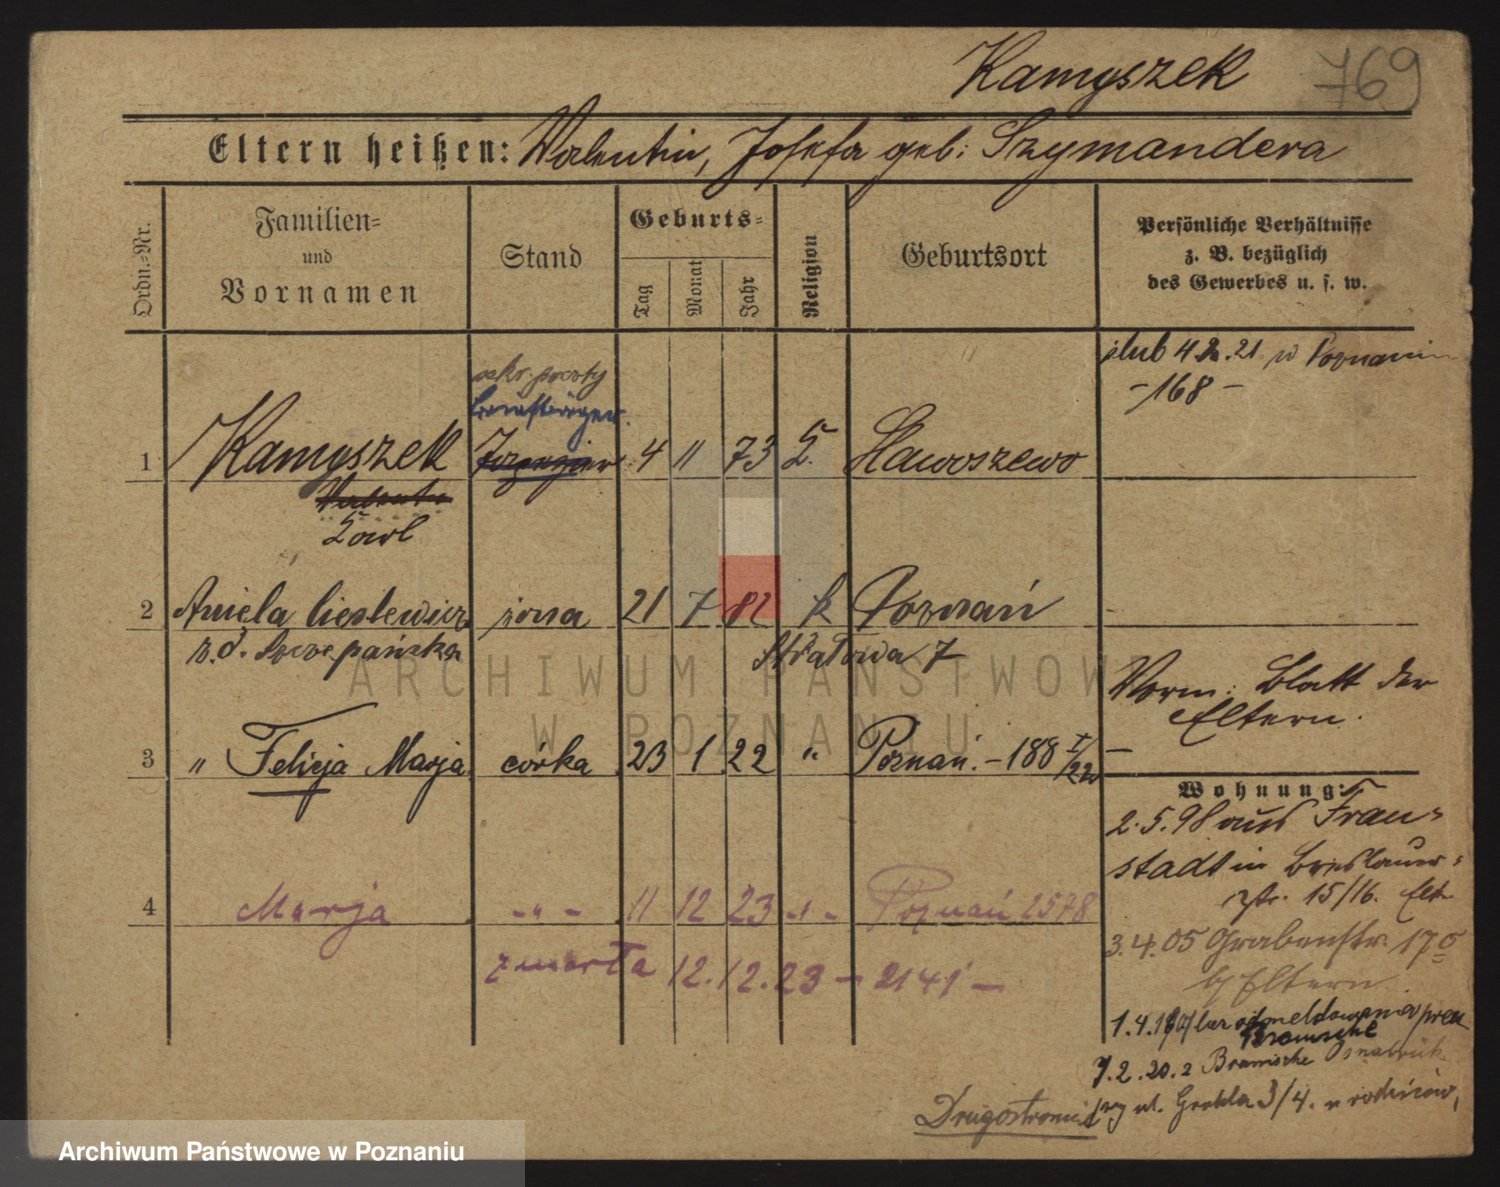 Kamyszek 769
Eltern heißen: Valentin, Josefa geb: Szymandera
Ordn.-Nr.
Familien-
und
Vornamen
Stand
Geburts-
Tag
Monat
Jahr
Religion
Geburtsort
Persönliche Verhältnisse
z. B. bezüglich
des Gewerbes u. s. w.
ślub 4 2. 21. w Poznaniu
-168-
sekr. poczty
1 Kamyszek 4 11 73 Sławoszewo
Valentin
Karl
2 Aniela Cieslewicz żona 21 7 82 k Poznań
z. d. Szczepańska
Strzałowa 7
Vorm: Blatt der
Eltern.
3 " Felicja Marja córka 23 1 22 " Poznań. - 188 I/22
Wohnung:
2.5.98 aus Frau-
stadt in Breslauer-
str. 15/16. Elt.
4 Marja - " - 11 12 23 - " - Poznań 2578
zmarła 12.12.23 - 2141 -
3.4.05 Grabenstr. 17
b/ Eltern
1.4.19
Bramsche
7.2.20. z Bramsche Osnabrück
przy ul. Grobla 3/4. u rodziców,
Drugostronnie
ARCHIWUM PAŃSTWOWE
W POZNANIU
Archiwum Państwowe w Poznaniu